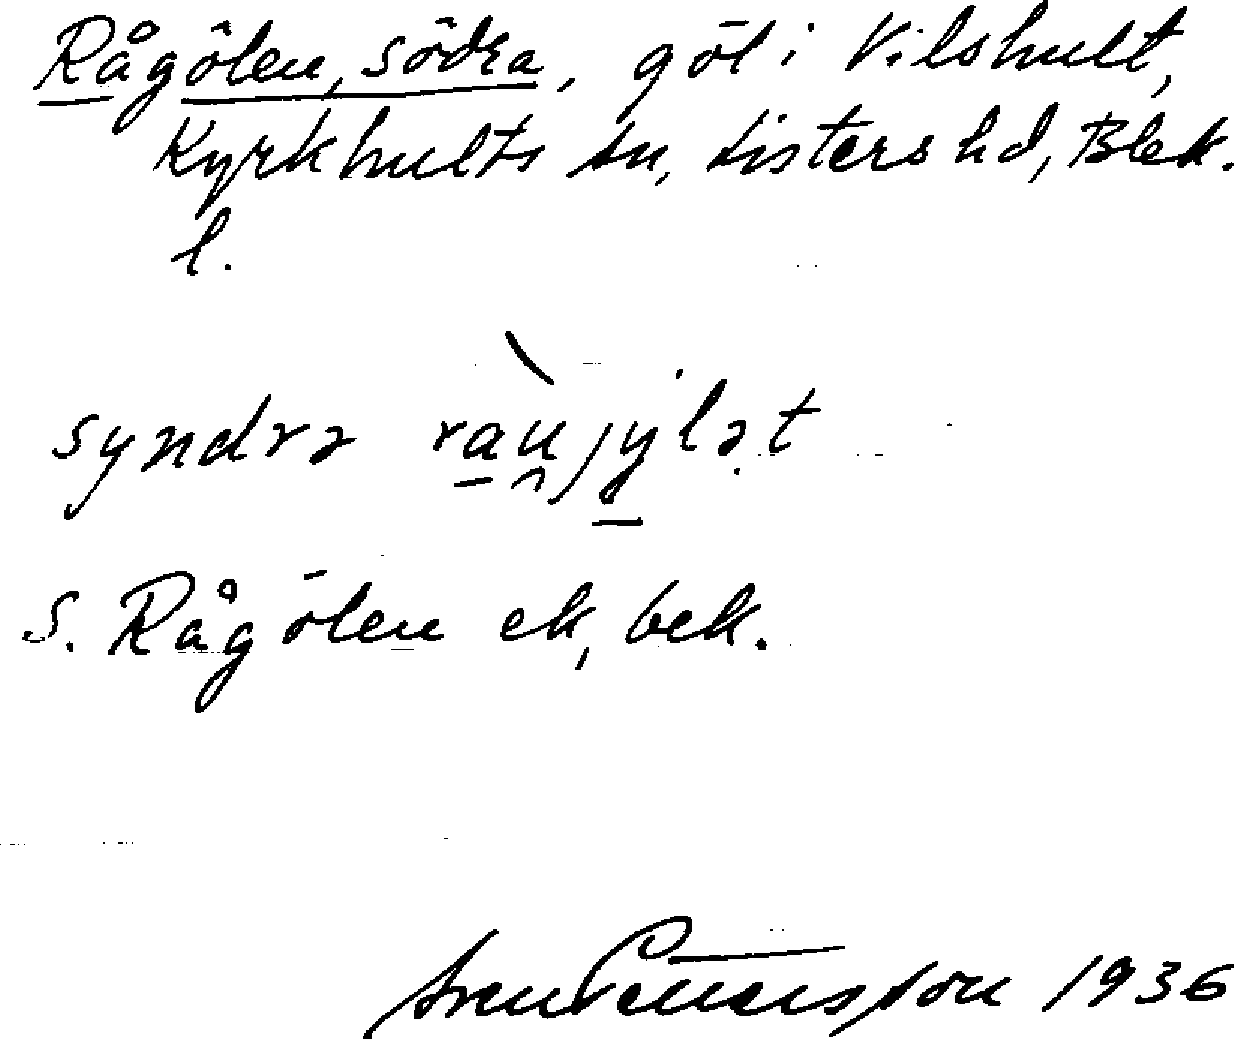 Rågölen, södra, göl i Vilshult,
Kyrkhults sn, Listers hd, Blek.
l.
syndrə ràu̯jylət
S. Rågölen ek, bek.
Sven Pettersson 1936